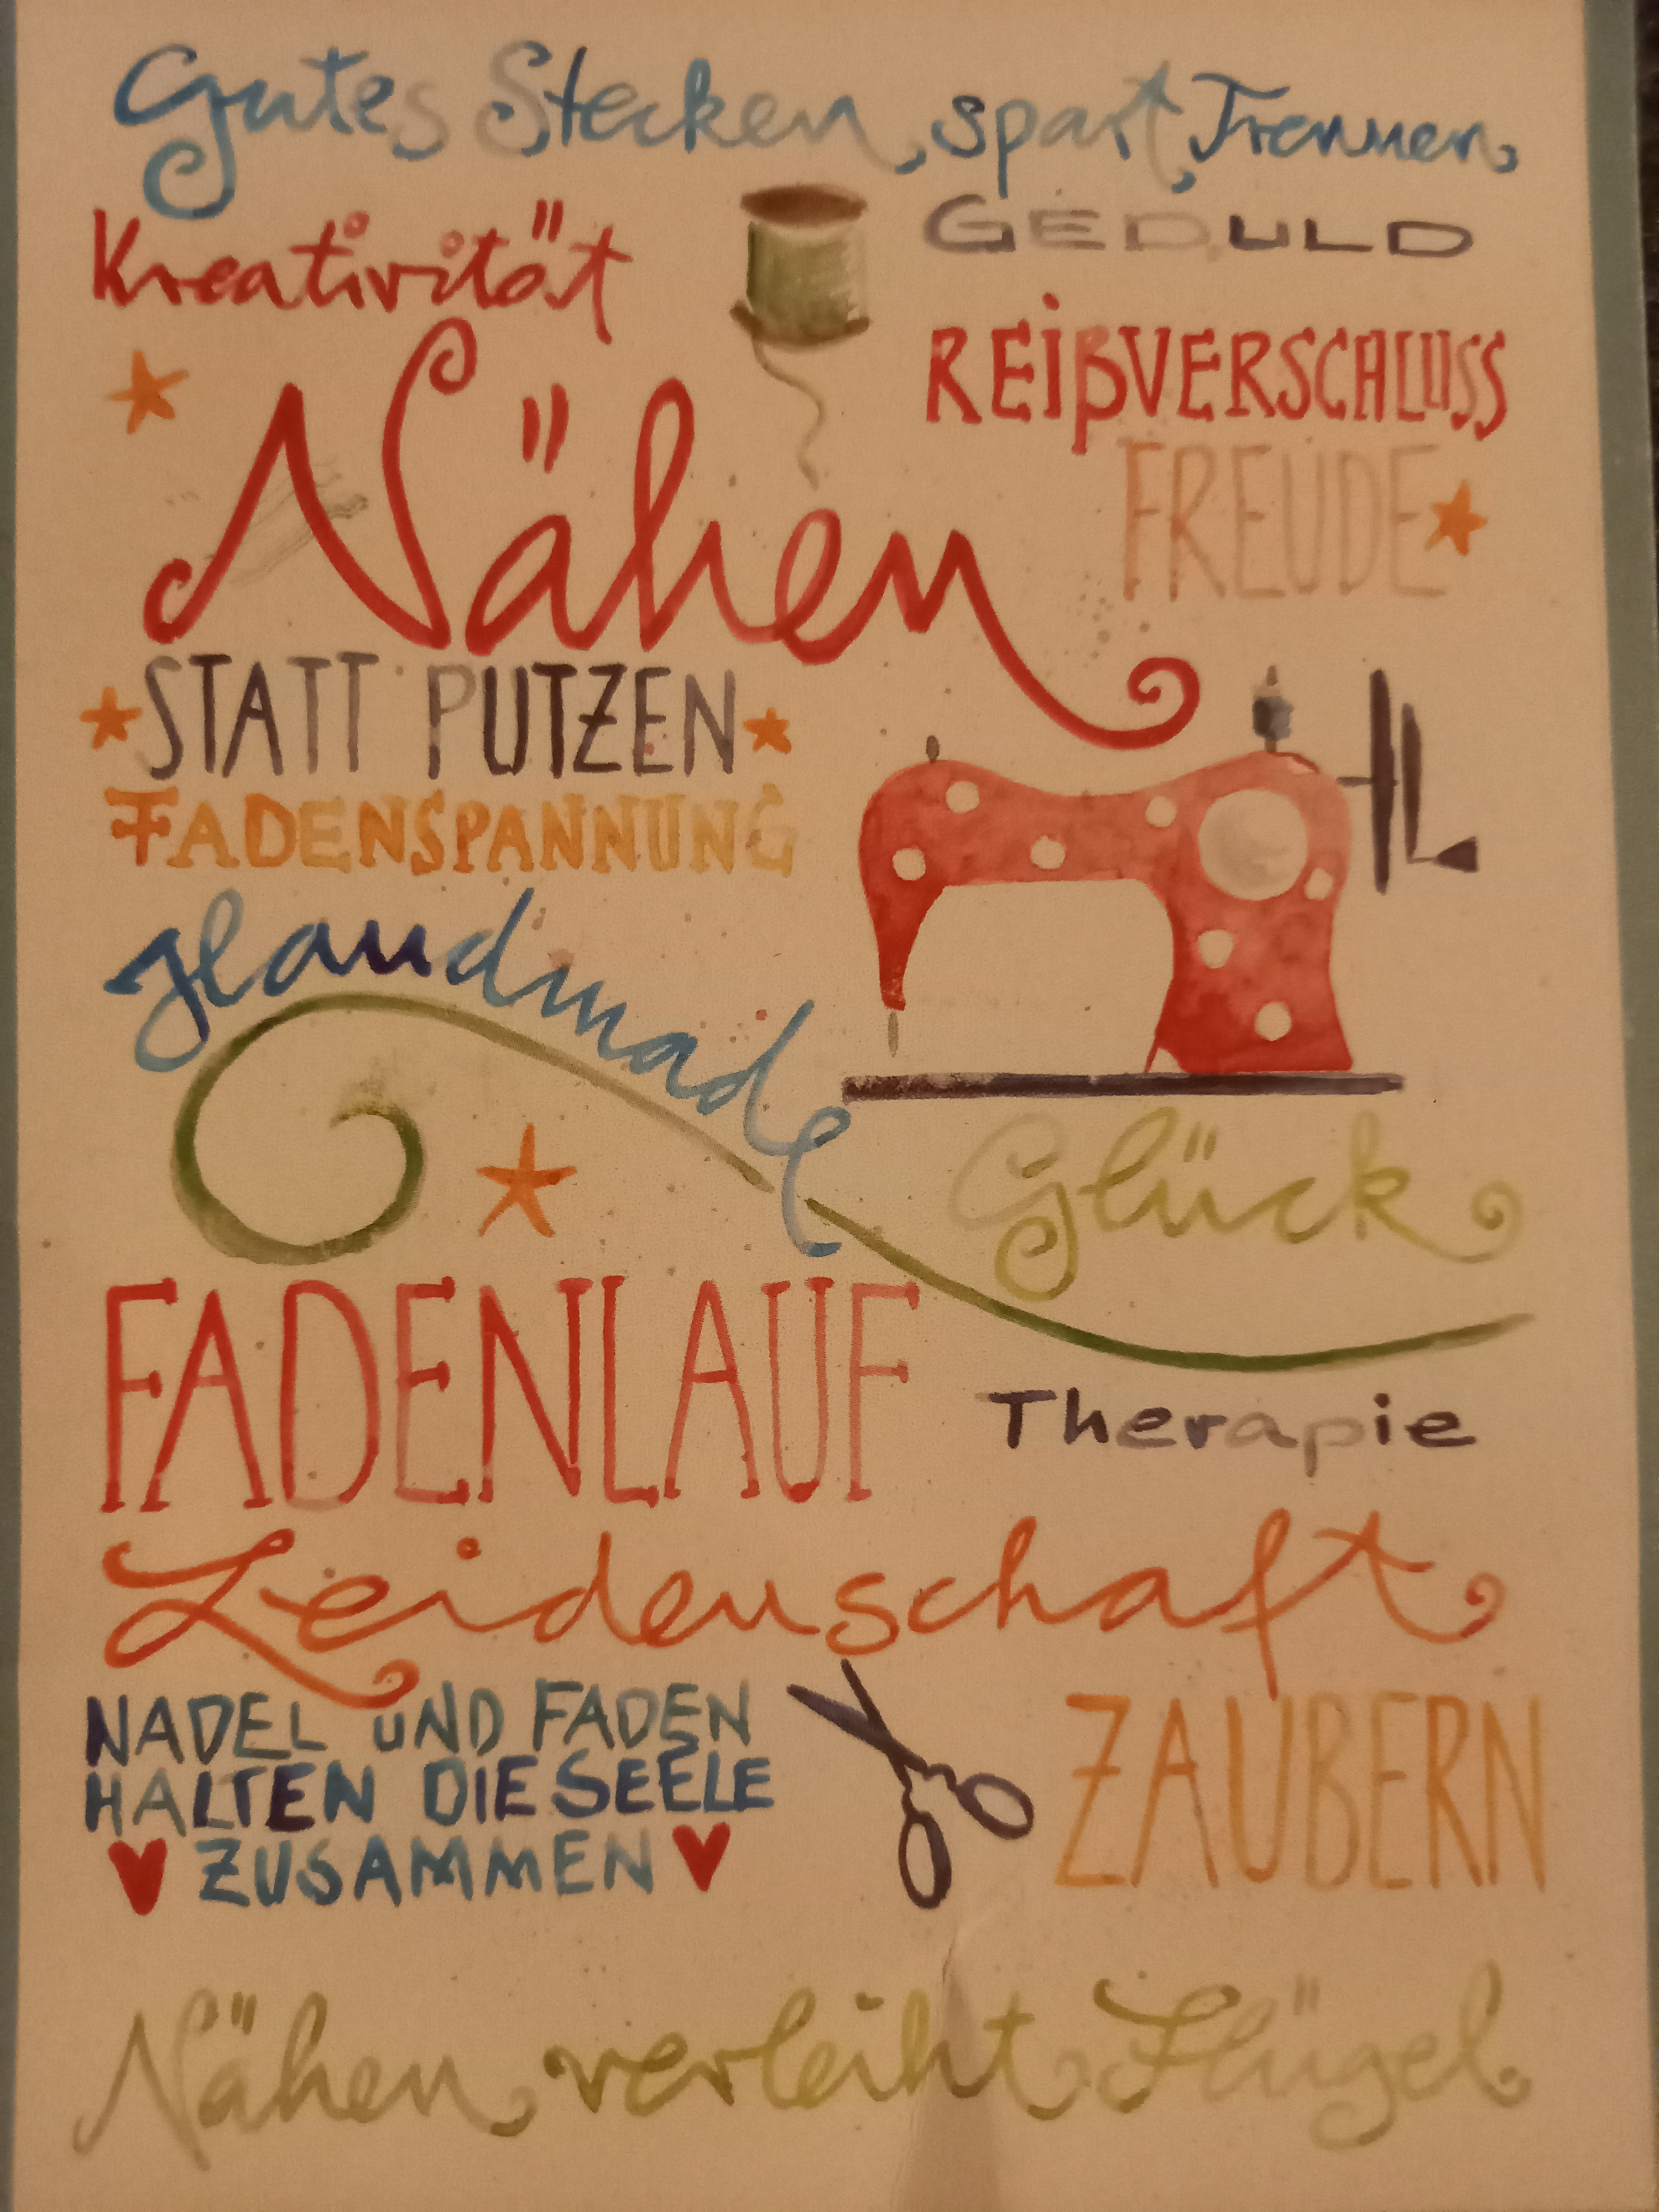 Gutes Stecken spart Trennen
Kreativität
GEDULD
REißVERSCHLUSS
Nähen
FREUDE
STATT PUTZEN
FADENSPANNUNG
Handmade
Glück
FADENLAUF
Therapie
Leidenschaft
NADEL UND FADEN
HALTEN DIE SEELE
ZUSAMMEN
ZAUBERN
Nähen verleiht Flügel